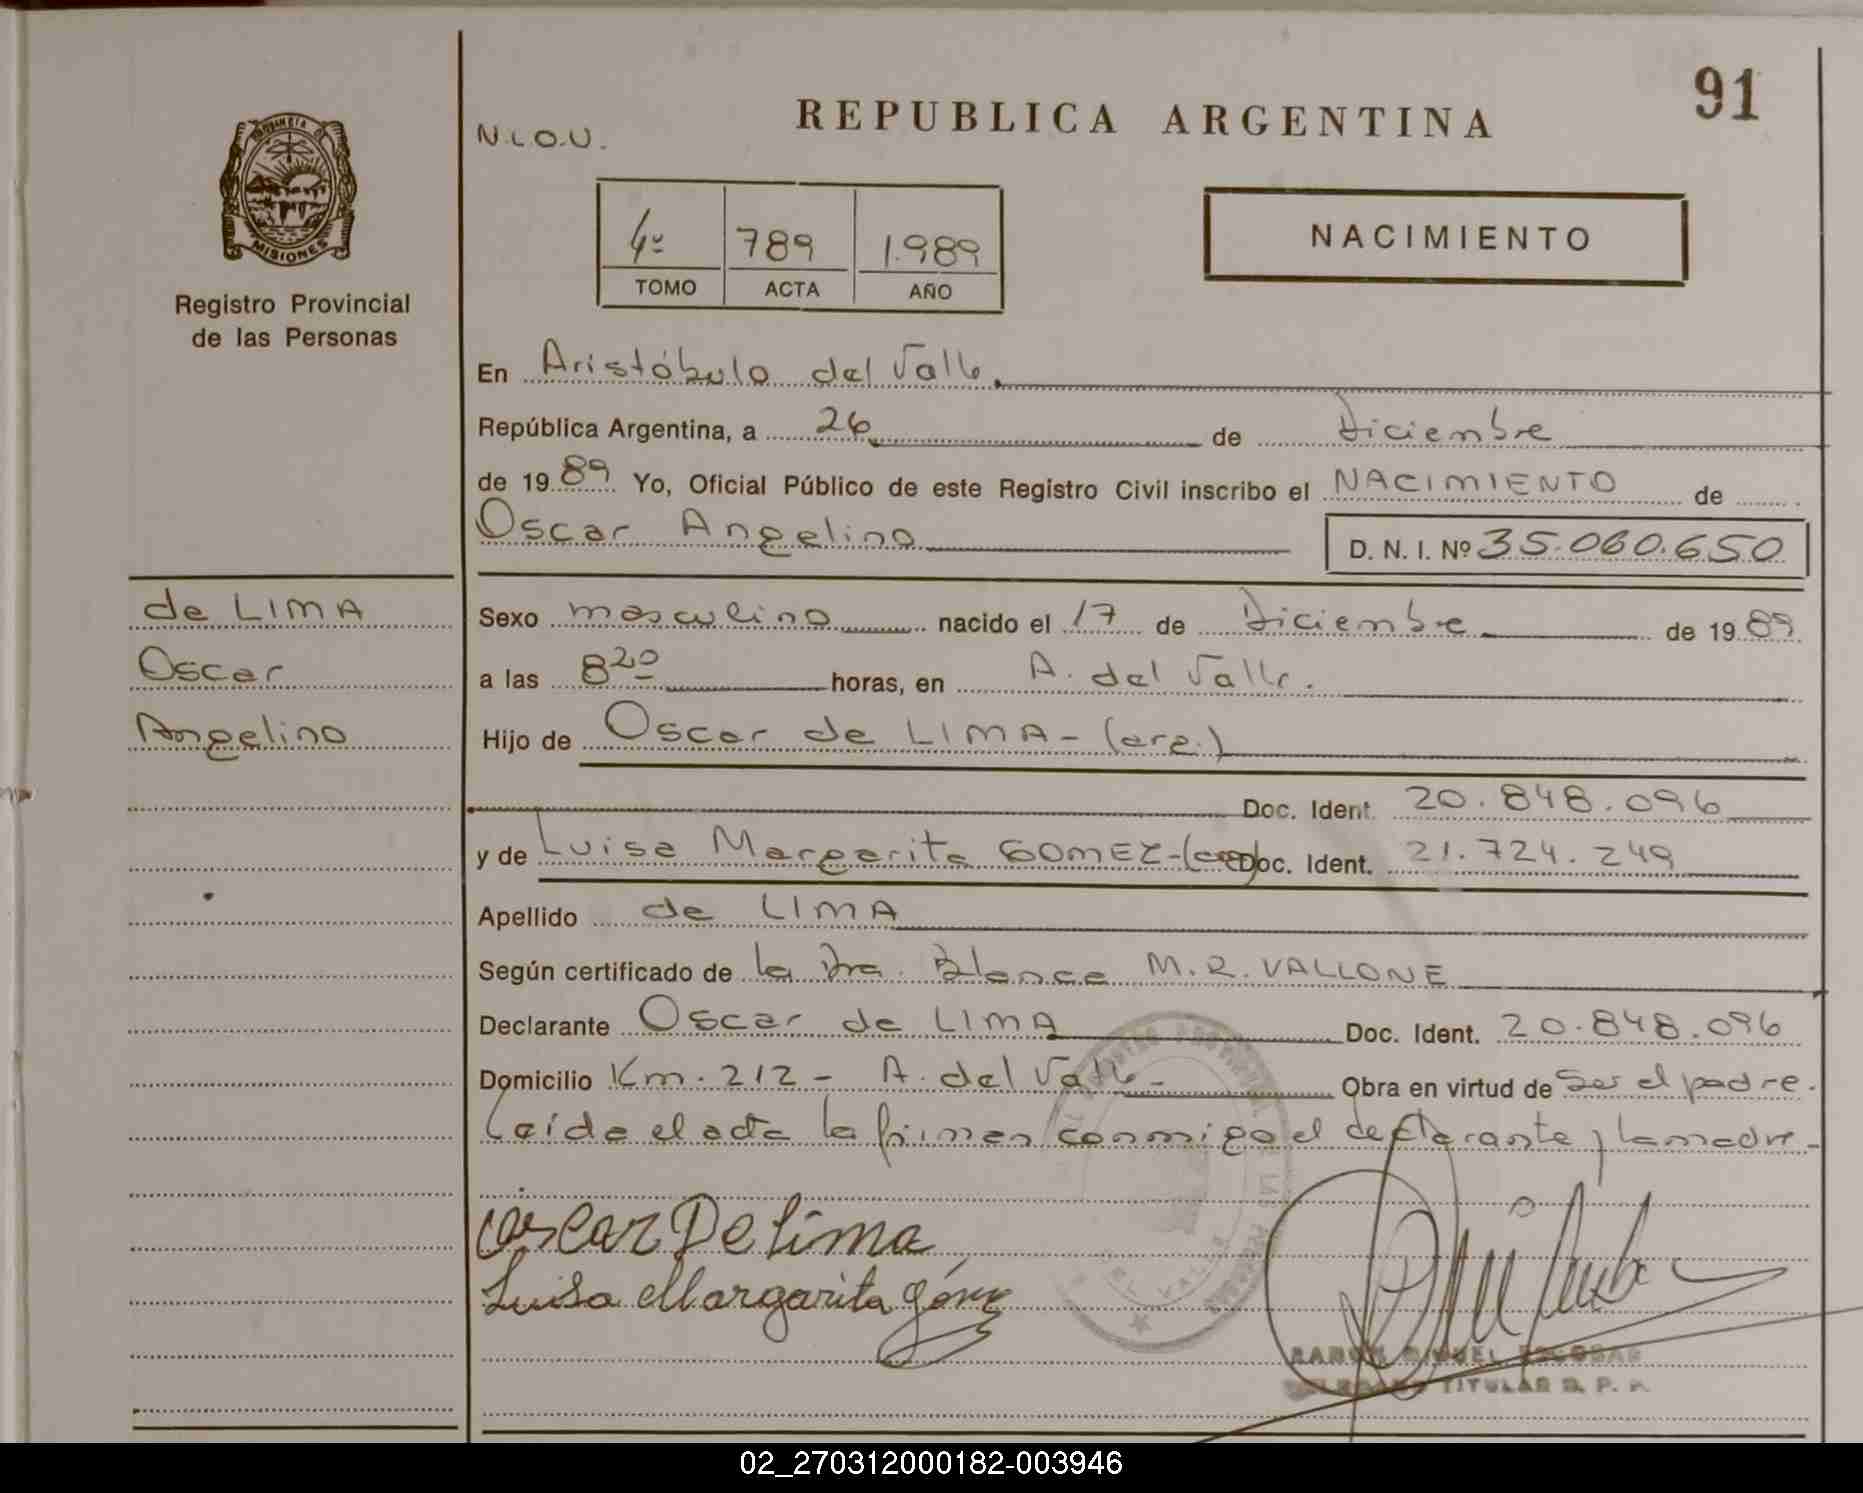 91
REPUBLICA ARGENTINA
N.L.O.U.
PROVINCIA DE
MISIONES
Registro Provincial
de las Personas
4º 789 1.989
TOMO ACTA AÑO
NACIMIENTO
En Aristóbulo del Valle.
República Argentina, a 26 de Diciembre
de 1989 Yo, Oficial Público de este Registro Civil inscribo el NACIMIENTO de
Oscar Angelino
D. N. I. Nº 35.060.650
de LIMA
Oscar
Angelino
Sexo masculino nacido el 17 de Diciembre de 1989
a las 8 20 horas, en A. del Valle.
Hijo de Oscar de LIMA - (arg.)
Doc. Ident. 20.848.096
y de Luisa Margarita GOMEZ - (arg) Doc. Ident. 21.724.249
Apellido de LIMA
Según certificado de la Dra. Blanca M. R. VALLONE
Declarante Oscar de LIMA Doc. Ident. 20.848.096
Domicilio Km. 212 - A. del Valle - Obra en virtud de ser el padre.
Leída el acta la firman conmigo el declarante y la madre -
oscar De lima
Luisa Margarita Gómez
RAMON MIGUEL ESCOBAR
DELEGADO TITULAR R. P. P.
02_270312000182-003946